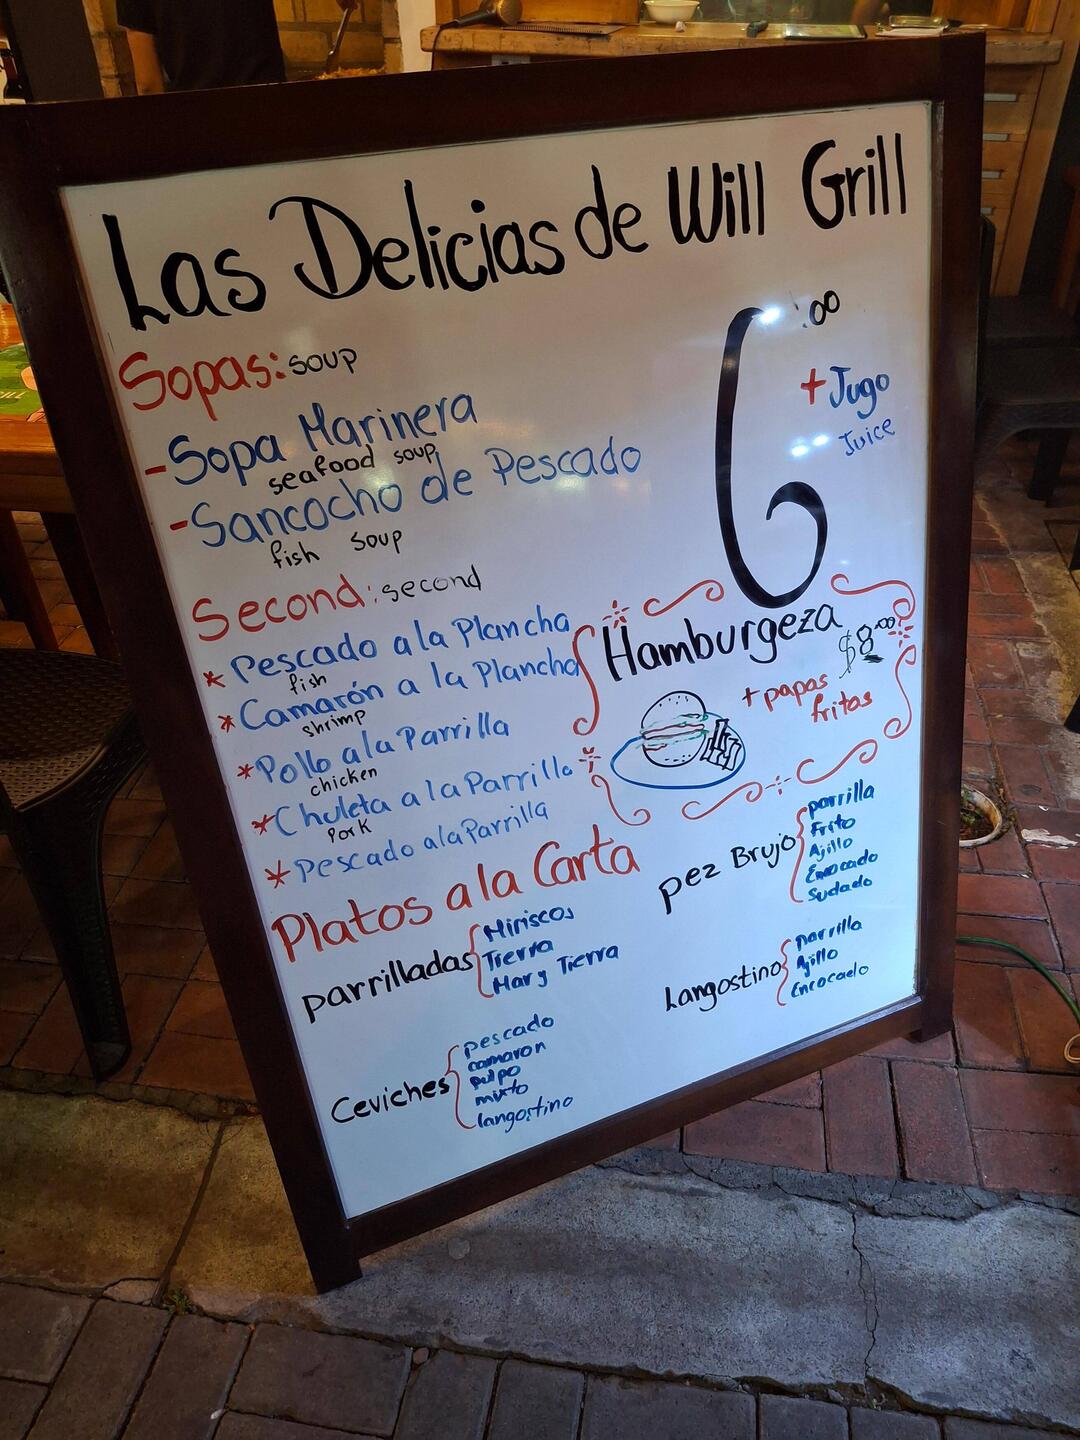 Las Delicias de Will Grill
6:00
+ Jugo
Juice
Sopas: soup
- Sopa Marinera
seafood soup
- Sancocho de Pescado
fish soup
Second: second
* Pescado a la Plancha
fish
* Camarón a la Plancha
shrimp
* Pollo a la Parrilla
chicken
* Chuleta a la Parrilla
Pork
* Pescado a la Parrilla
Hamburgeza
$8.00
+ papas
fritas
Platos a la Carta
parrilladas
Miriscos
Tierra
Mar y Tierra
Ceviches
pescado
camaron
pulpo
mixto
langostino
pez Brujo
parrilla
Frito
Ajillo
Encocado
Sudado
Langostino
parrilla
Ajillo
Encocado